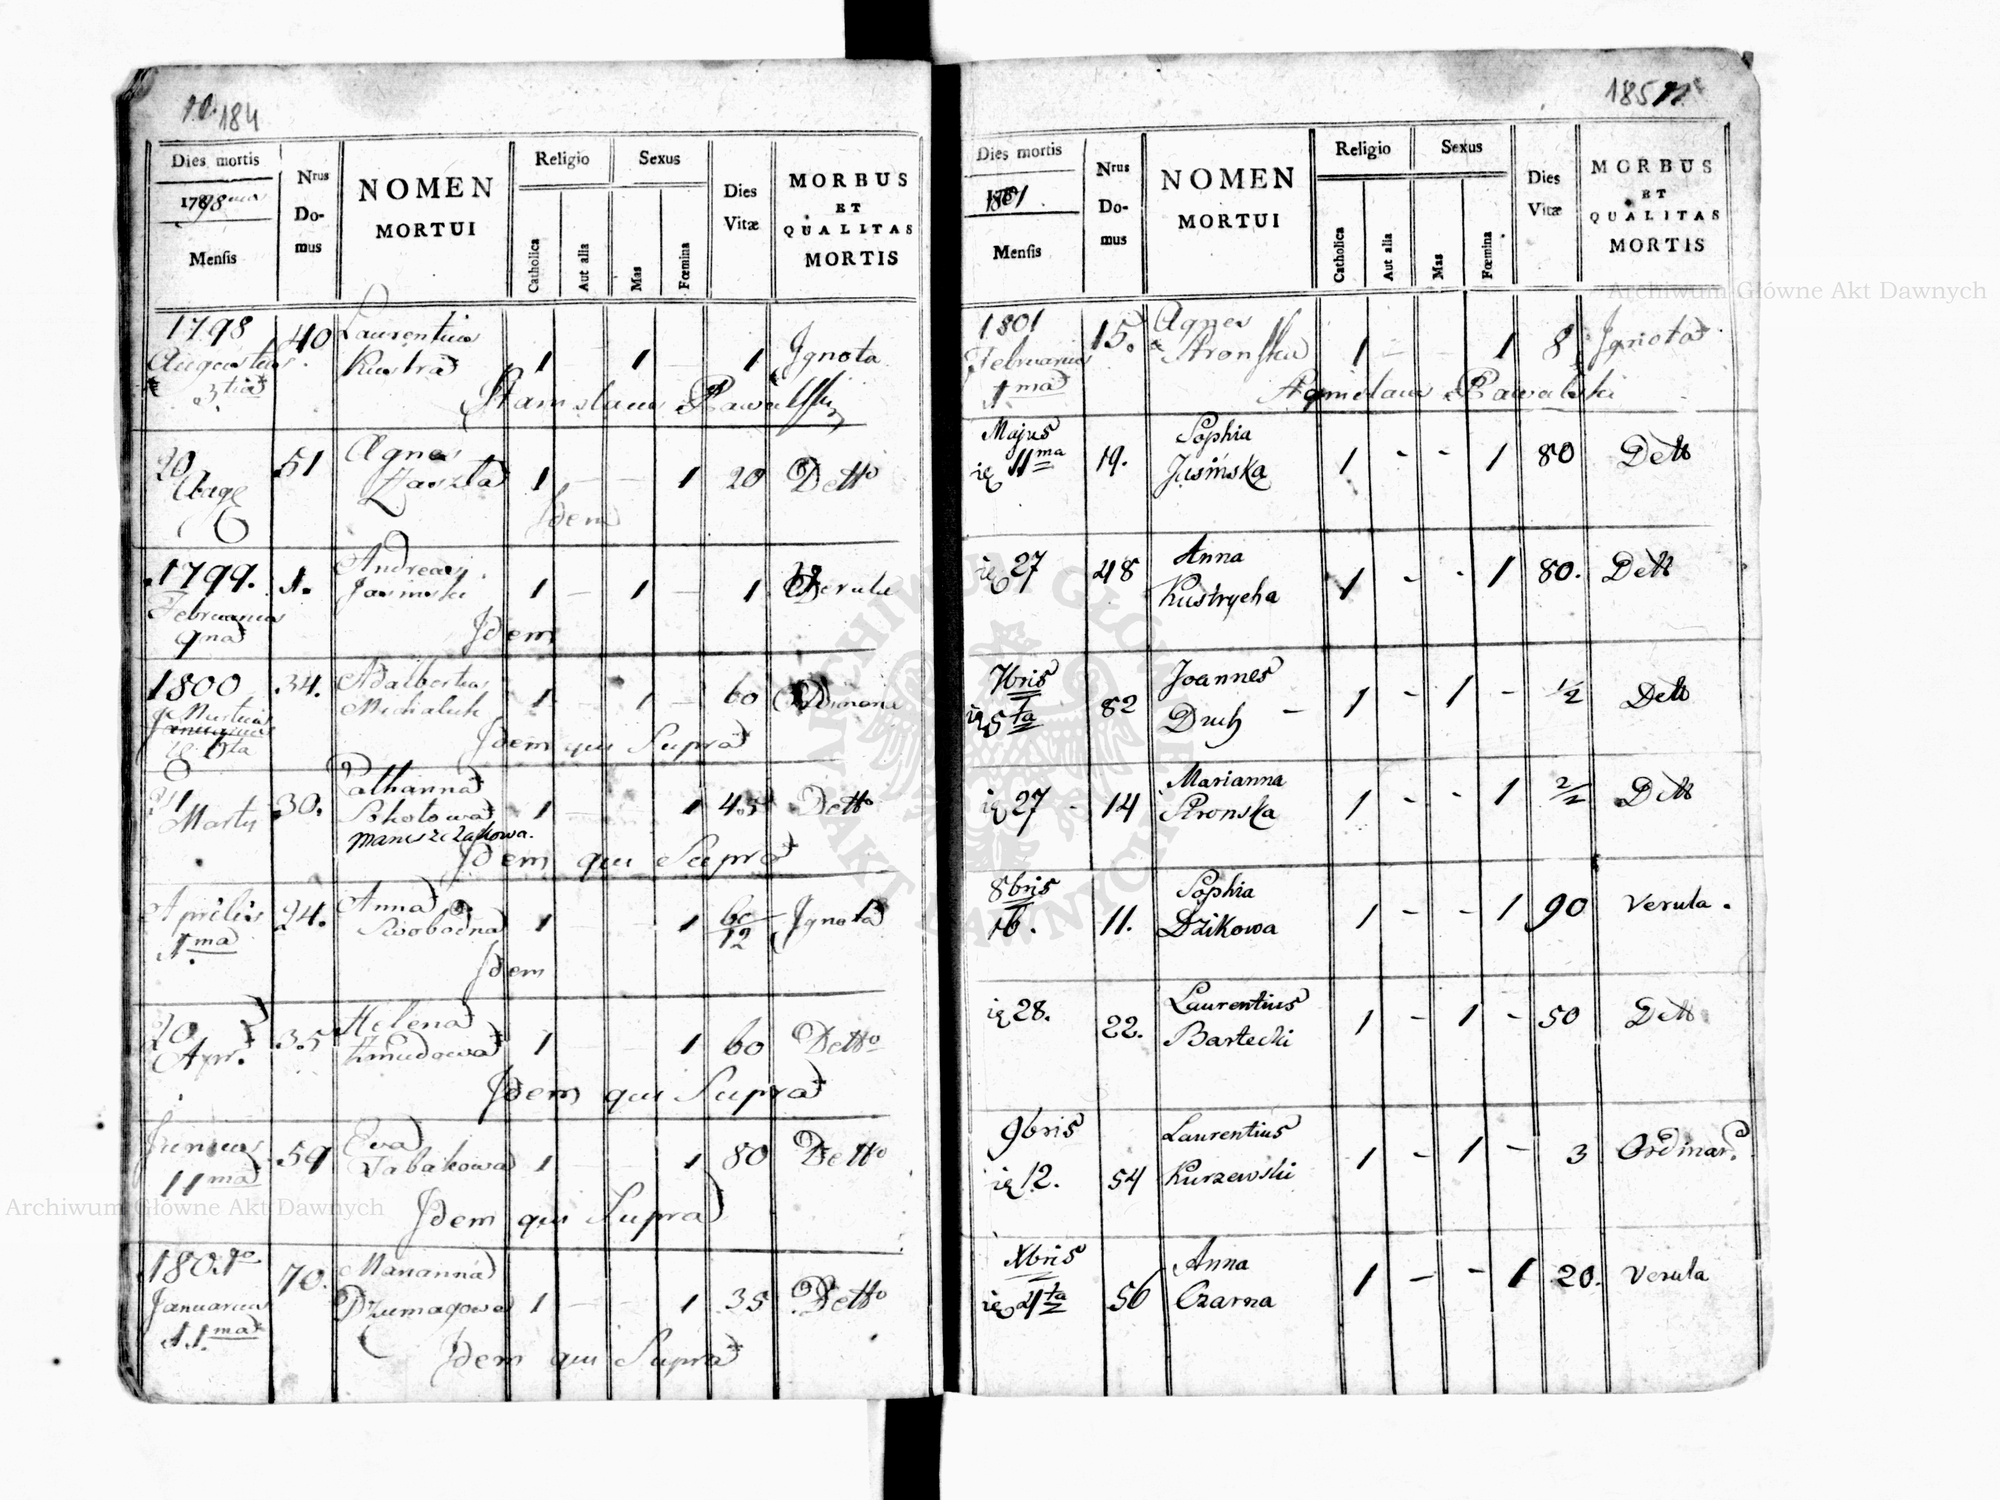 184
Dies mortis
1798
Mensis
Nrus Do-mus
NOMEN
MORTUI
Religio
Catholica
Aut alia
Sexus
Mas
Fœmina
Dies
Vitæ
MORBUS
ET
QUALITAS
MORTIS
1798 40 Laurentius
Augustus Kustra 1 - 1 - 1 Jgnota
3tia Stanislaus Rawalski
20 51 Agnes
Zaszta 1 - - 1 20 Detto
Jdem
1799. 1. Andreas
Februarius Jasinski 1 - 1 - 1
9na Jdem
1800 34. Adalbertus
Martius Michaluk 1 - 1 - 60
Jdem qui Supra
Martij 30. Catharina
Sokołowa 1 - - 1 45 Detto
Maruszczakowa.
Jdem qui Supra
Aprilis 24. Anna
1ma Swobodna 1 - - 1 60/12 Jgnota
Jdem
20 35 Helena
Apr. Kmudowa 1 - - 1 60 Detto
Jdem qui Supra
Junius 59 Eva
11ma Tabakowa 1 - - 1 80 Detto
Jdem qui Supra
70. Marianna
Januarius Dzumagowa 1 - - 1 35 Detto
11ma
Jdem qui Supra
185
Dies mortis
1801
Mensis
Nrus Do-mus
NOMEN
MORTUI
Religio
Catholica
Aut alia
Sexus
Mas
Fœmina
Dies
Vitæ
MORBUS
ET
QUALITAS
MORTIS
1801 15. Agnes
Februarius Stronska 1 - - 1 8 Jgnota
1ma Stanislaus Rawalski
Majus Sophia
11ma 19. Jusińska 1 - - 1 80 Detto
27 48 Anna
Kustrycha 1 - - 1 80. Detto
7bris Joannes
5ta 82 Druh - 1 - 1 - 1/2 Detto
27 - 14 Marianna
Stronska 1 - - 1 2/2 Detto
8bris Sophia
16. 11. Dzikowa 1 - - 1 90 Verula.
28. 22. Laurentius
Bartecki 1 - 1 - 50 Detto
9bris Laurentius
12. 54 Kurzewski 1 - 1 - 3 Ordinar.
Xbris Anna
4ta 56 Czarna 1 - - 1 20. Verula
Archiwum Główne Akt Dawnych
Archiwum Główne Akt Dawnych
ARCHIWUM GŁÓWNE AKT DAWNYCH